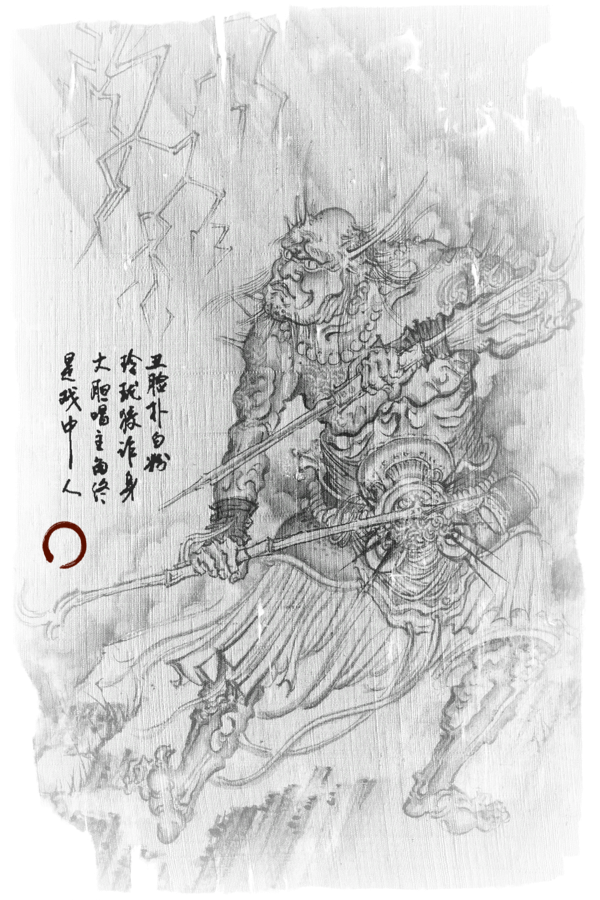 丑脸扑白粉
玲珑狡诈身
大胆唱主角终
是戏中人